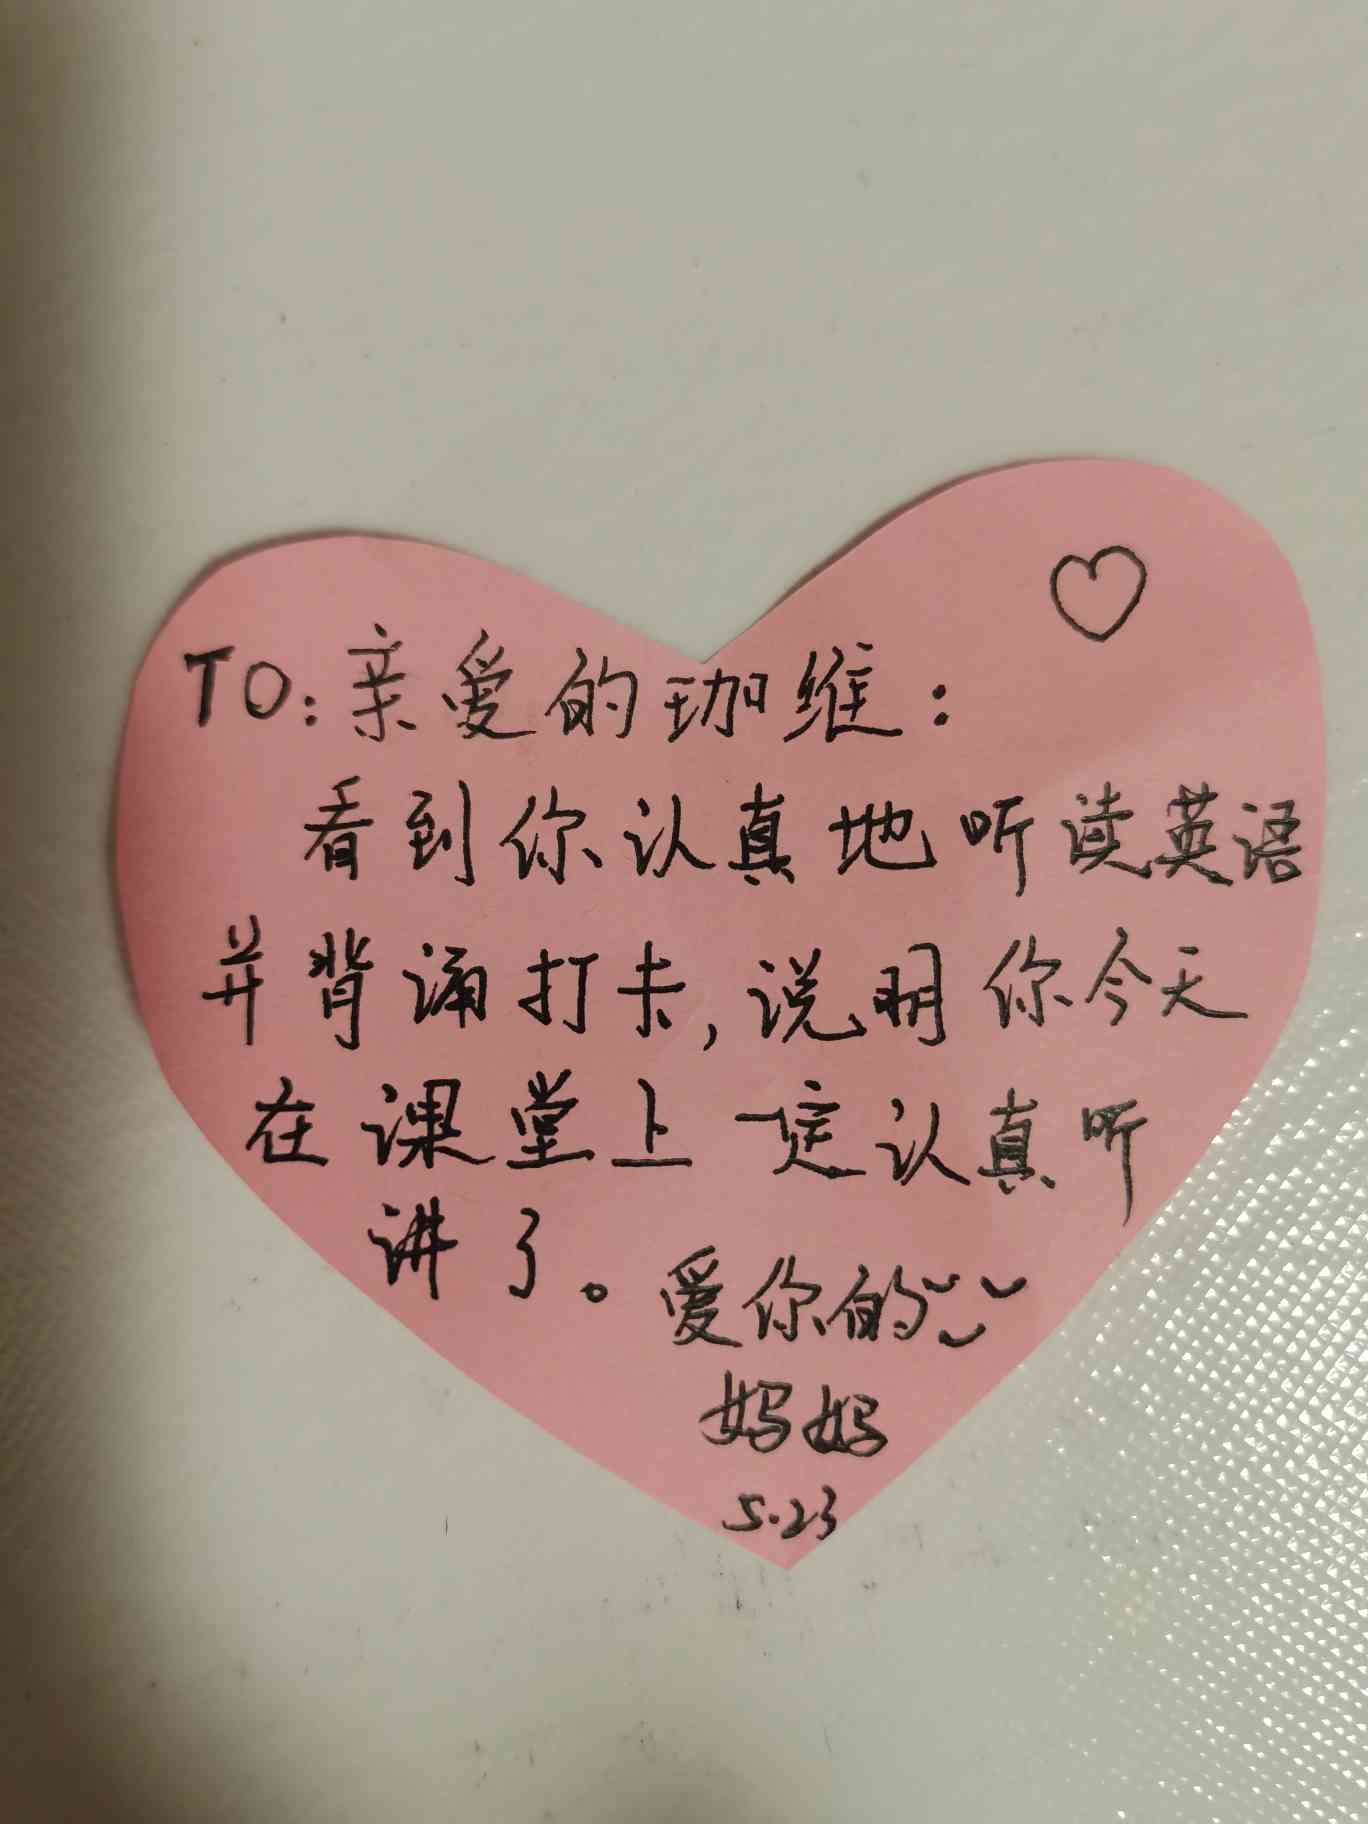 TO:亲爱的珈维:
看到你认真地听读英语
并背诵打卡,说明你今天
在课堂上一定认真听
讲了。爱你的
妈妈
5.23